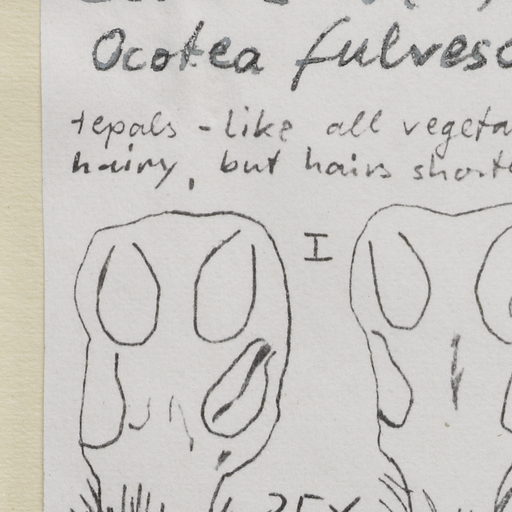 Ocotea fulvesc
tepals - like all vegeta
hairy, but hairs shorte
I
25x